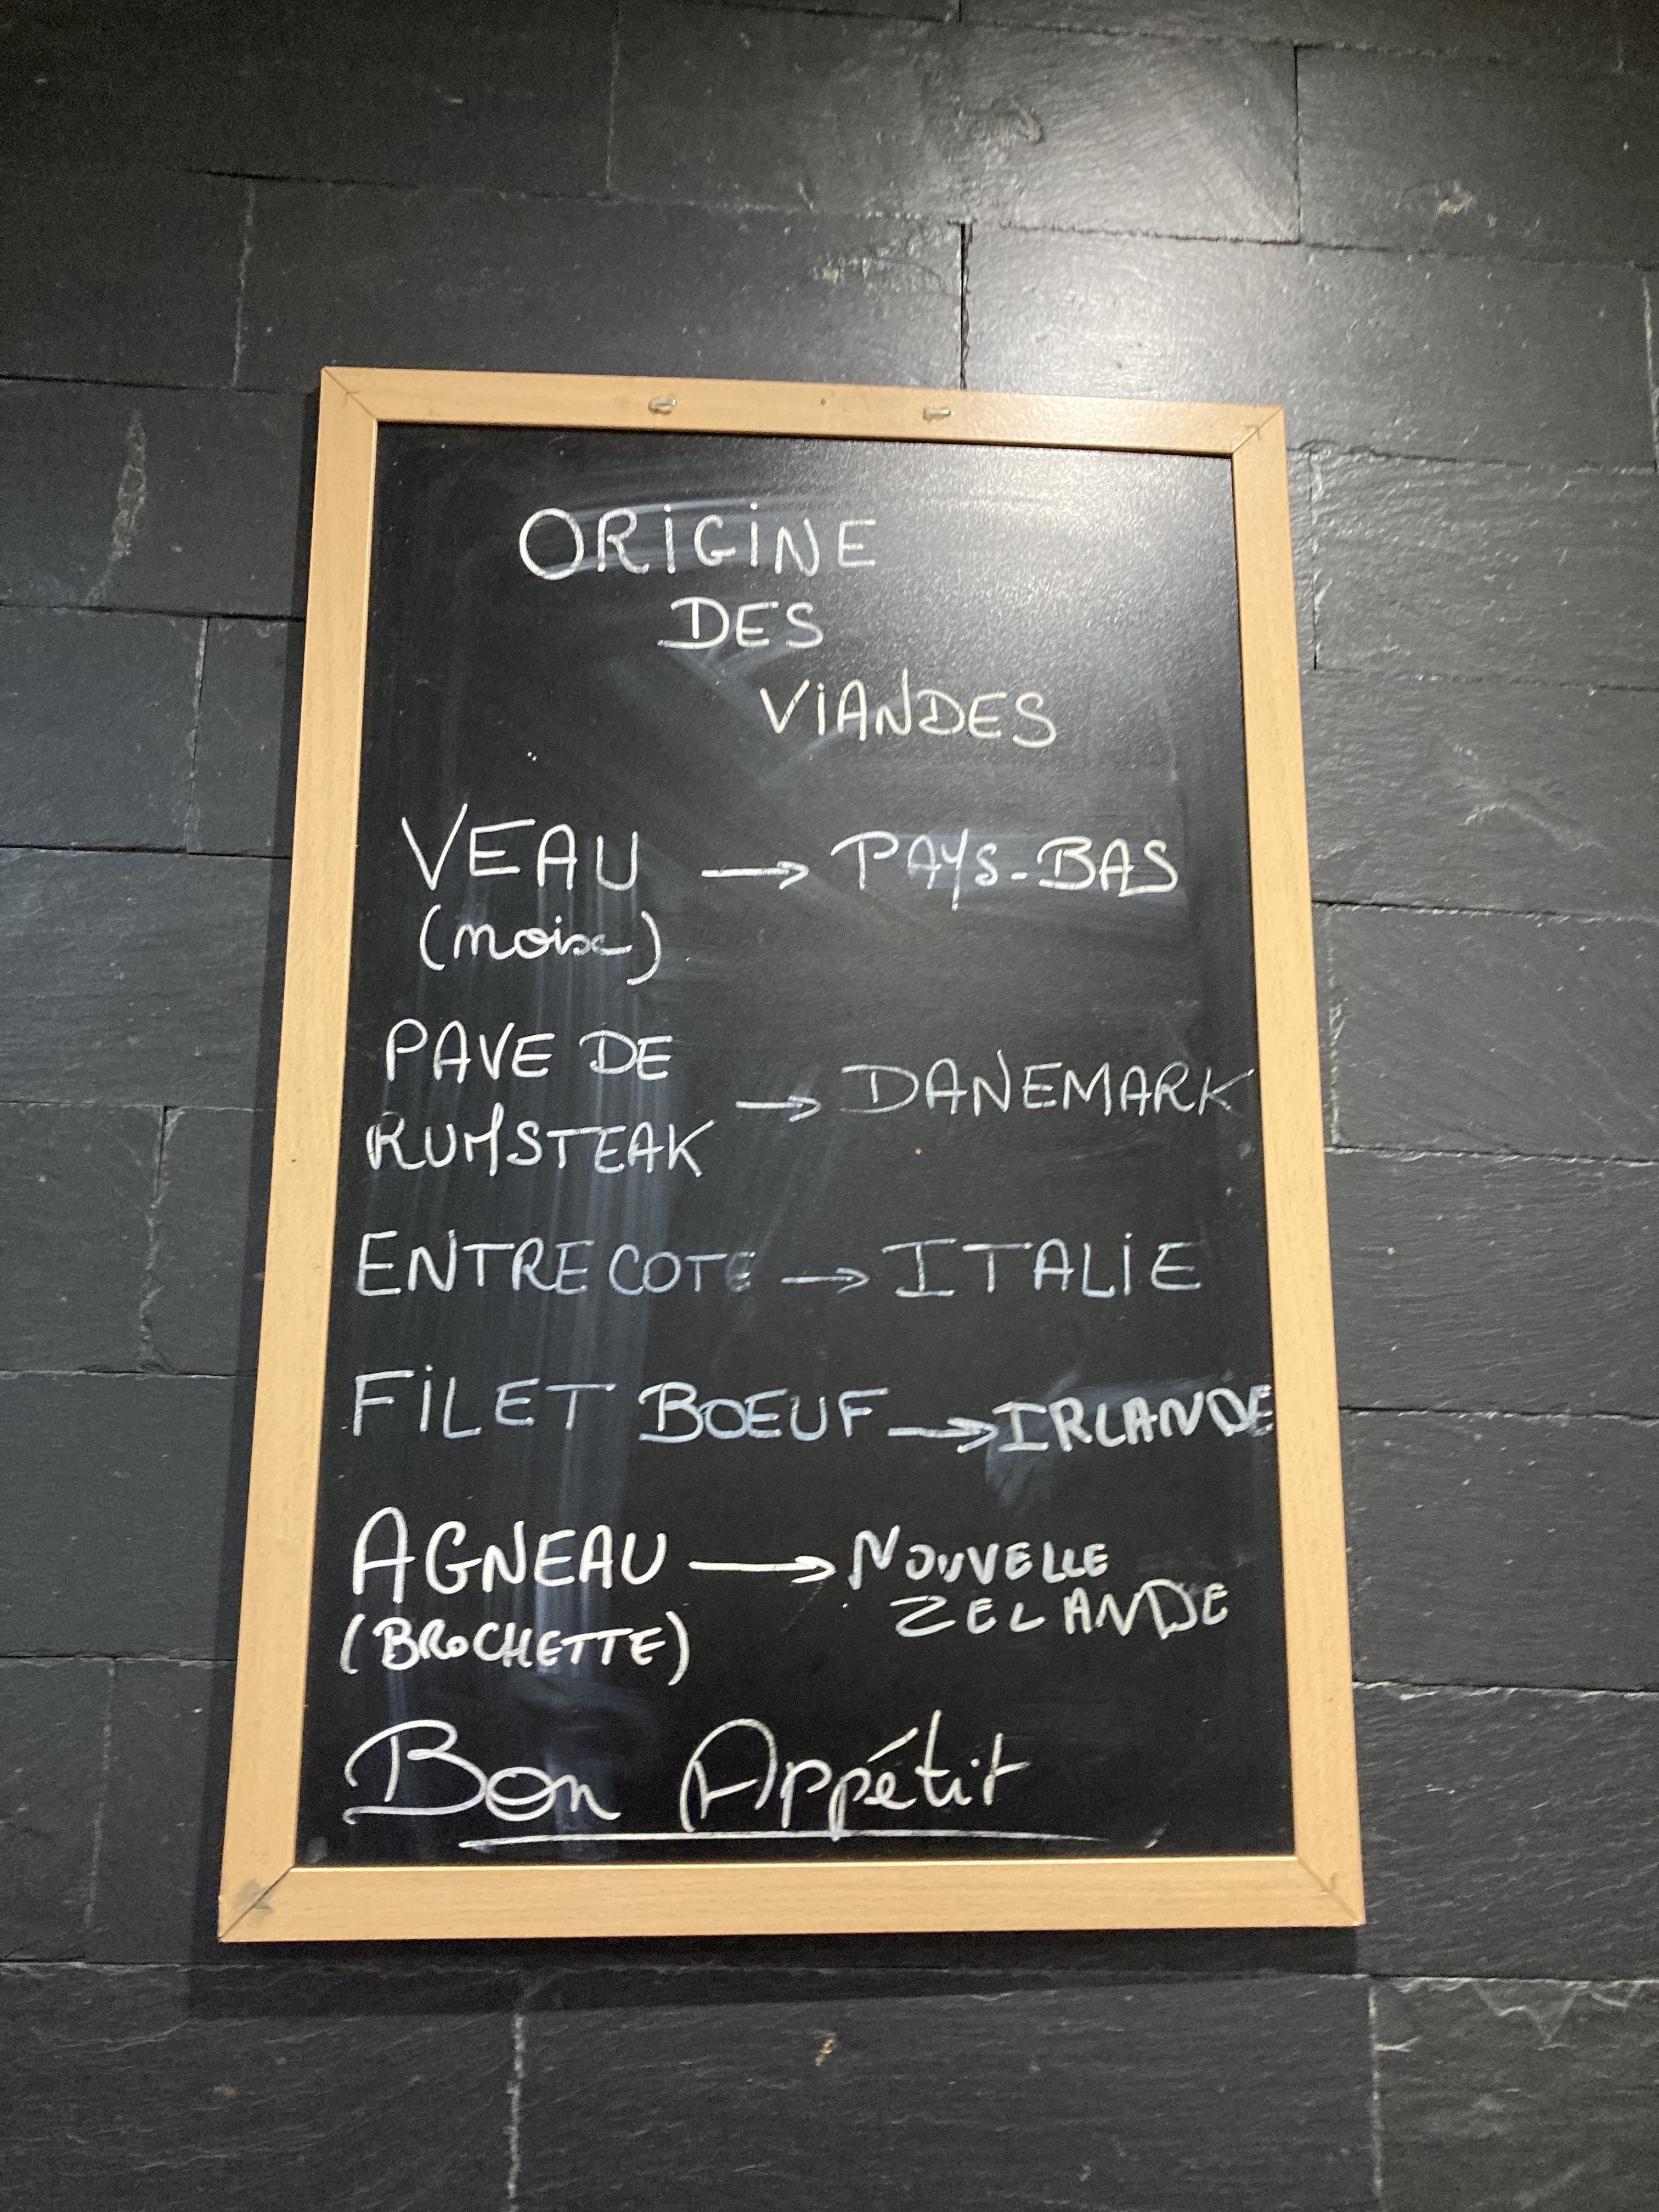 ORIGINE
DES
VIANDES
VEAU → PAYS-BAS
(noix)
PAVE DE
RUMSTEAK → DANEMARK
ENTRECOTE → ITALIE
FILET BOEUF → IRLANDE
AGNEAU → NOUVELLE
ZELANDE
(BROCHETTE)
Bon Appétit